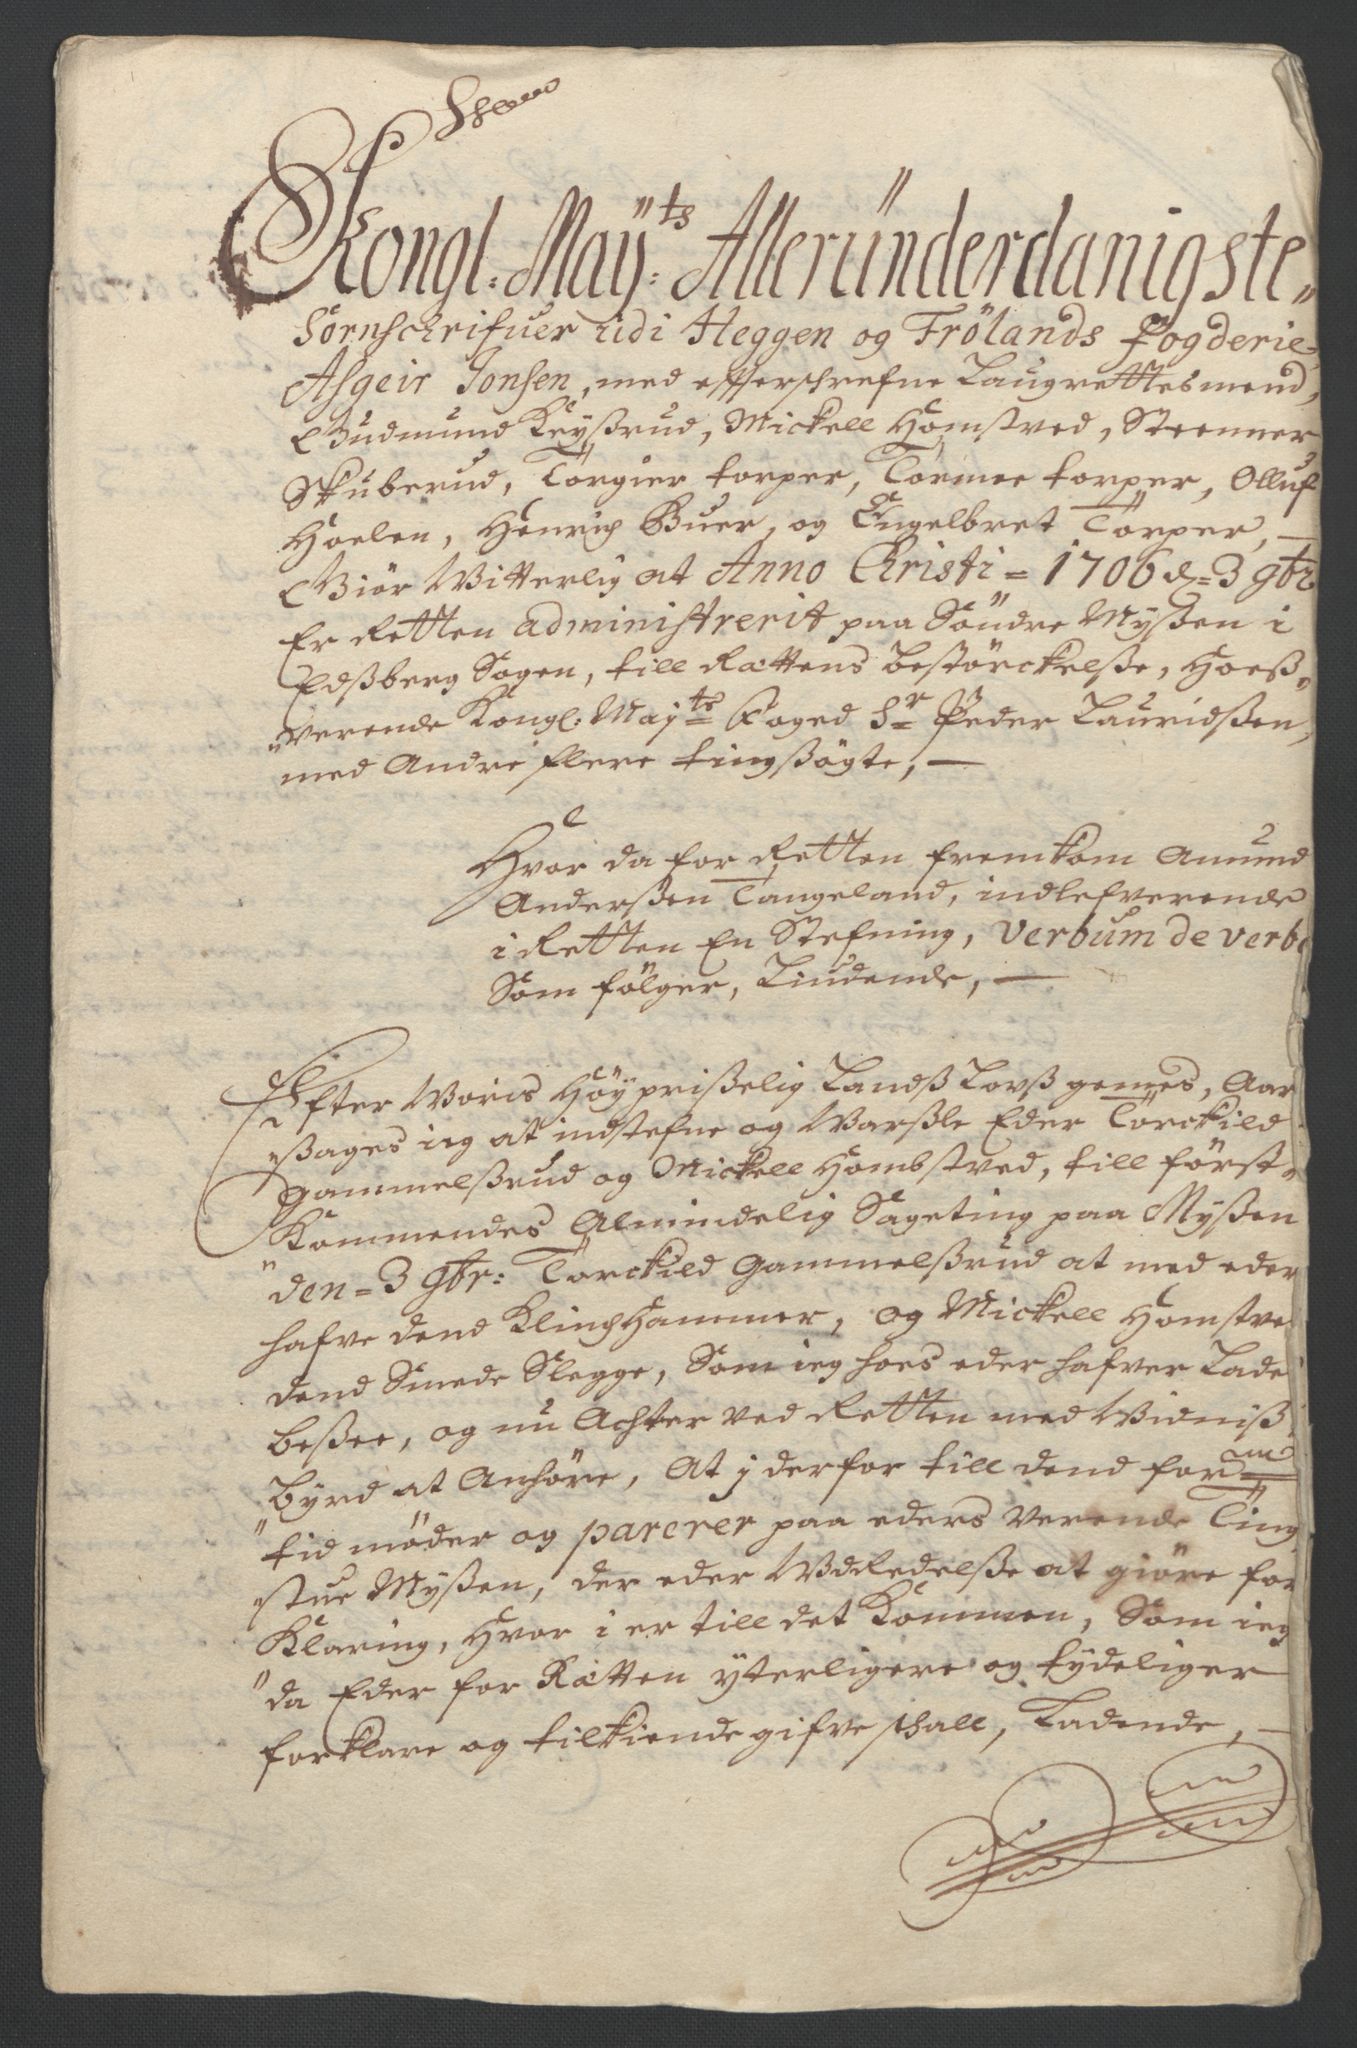 Kongl: Maÿ:ts Alleründerdanigste
Sornschrifuer udi Heggen og Frölands Fogderie,
Asgeir Jonsen, med efterschrefne Laugrettesmend,
Gudmund Keyßrud, Mickell Homstved, Steenner
Skuberud, Törgier torper, Törmoe torper, Olluf
Hoelen, Henrich Buer, og Engelbret Törper, —
Giör Witterlig at Anno Christi = 1706 d = 3 9br
Er Retten administrerit paa Söndre Myßen i
Edßberg Sogen, till Rættens bestörckelße, Hoeß-
"werende Kongl: Maj:ts Foged Sr Peder Lauridßen,
med Andre flere tingßögte, —
Hvor da for Retten fremkom Amund
Anderßen Tangeland, indlefverende
i Retten En Stefning, Verbum de verbo
Som fölger, Liudende, —
Efter Woris Höÿprißelig Landß Lovß gemes, Aar
"ßages ieg at indstefne og Warßle Eder Törckild
Gammelßrud og Mickell Hombstved, till först-
"Kommendes Almindelig Sageting paa Myßen
den = 3 9br: Törckild Gammelßrud at med eder
hafve dend Klinchhammer, og Mickell Homstve
dend Smede Slegge, Som ieg hoes eder hafver Lade
beßee, og nu Achter ved Retten med Widniß
byrd at Anhöre, At j derfor till dend for
"tid möder og parerer paa eders verende Ting
"stue Myßen, der eder Wdredelße at giöre for
Klaring, Hvor i er till det Kommen, Som ieg
"da Eder for Rætten yterligere og tydeliger
forklare og tilkiende gifve schall, Ladende, —